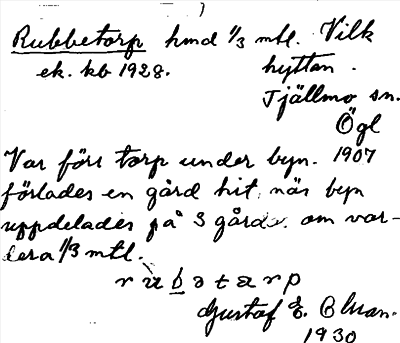 Rubbetorp hmd 1/3 mtl. Vilk
ek. kb 1928. hyttan.
Tjällmo sn.
Ögl
Var förr torp under byn. 1907
förlades en gård hit, när byn
uppdelades på 3 gårdar om var-
dera 1/3 mtl.
rubətarp
Gustaf E. Bluan.
1930